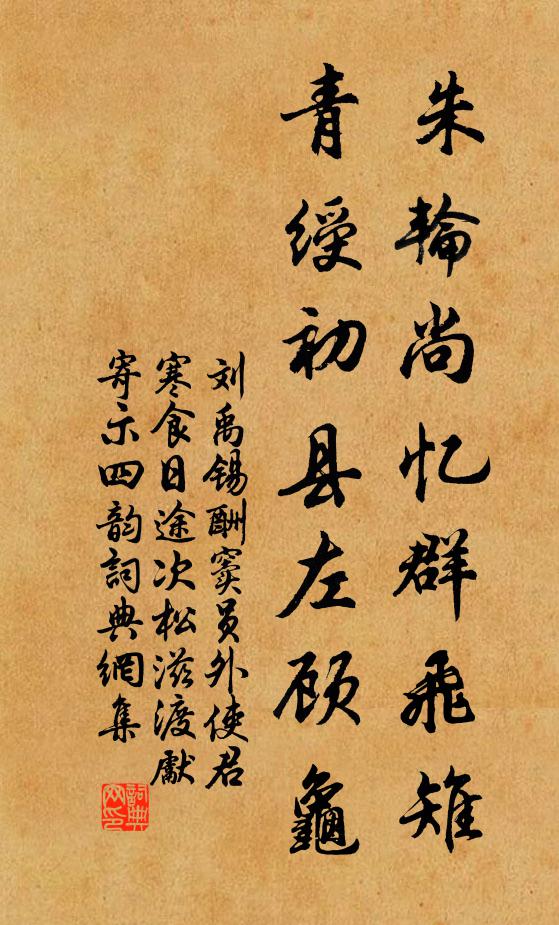 朱輪尚忆群飛雉
青綬初县左顾龜
刘禹锡酬窦员外使君
寒食日途次松滋渡獻
寄示四韵詞典網集
詞典
网印